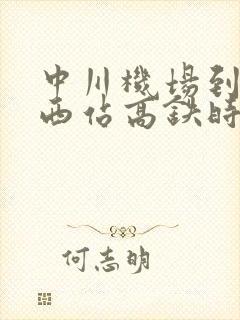 中川機場到
西佔高鉄時
何志明